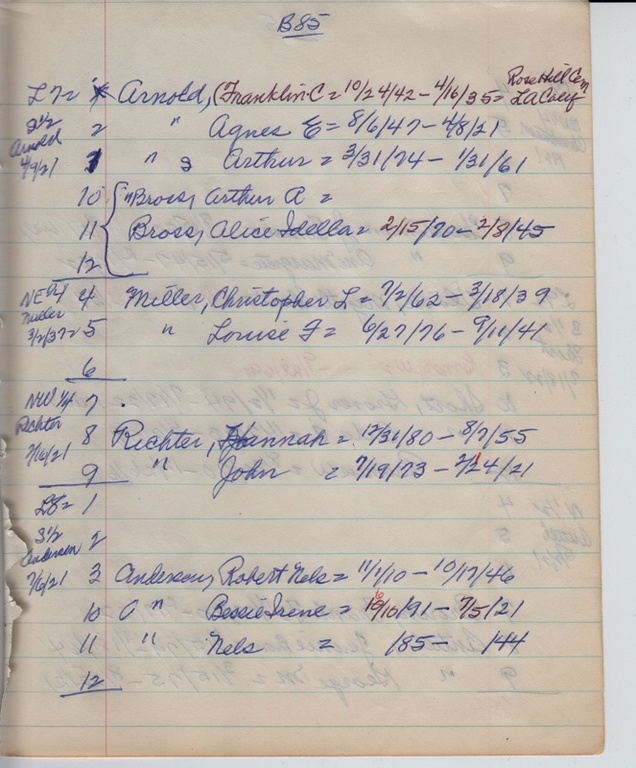 B85
Rose Hill Cem
L7= 1 Arnold, (Franklin C = 10/24/42 – 4/16/35 = LA Calif
S 1/2 2 " Agnes E = 8/6/47 – 4/8/21
Arnold
4/9/21 3 " Arthur = 3/31/74 – 1/31/61
10 "Bross, Arthur A =
11 Bross, Alice Idella = 2/15/70 – 2/8/45
12
NE 1/4 4 Miller, Christopher L = 7/2/62 – 3/18/39
Miller
3/2/37= 5 " Louise F = 6/27/76 – 9/11/41
6
NW 1/4 7 .
Richter 8 Richter, Hannah = 12/31/80 – 8/7/55
7/16/21
9 " John = 7/19/73 – 2/24/21
L8= 1
S 1/2 2
Anderson
7/6/21 3 Anderson, Robert Nels = 11/1/10 – 10/17/46
10 " Bessie Irene = 10/91 – 7/5/21
11 " Nels = 185 – 144
12